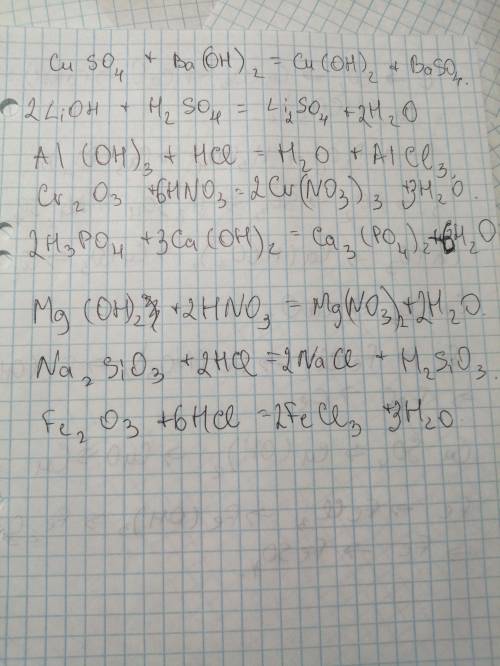 CuSO4 + Ba(OH)2 = Cu(OH)2 + BaSO4.
2LiOH + H2SO4 = Li2SO4 + 2H2O
Al(OH)3 + HCl = H2O + AlCl3.
Cr2O3 + 6HNO3 = 2Cr(NO3)3 + 3H2O.
2H3PO4 + 3Ca(OH)2 = Ca3(PO4)2 + 6H2O
Mg(OH)2 + 2HNO3 = Mg(NO3)2 + 2H2O.
Na2SiO3 + 2HCl = 2NaCl + H2SiO3.
Fe2O3 + 6HCl = 2FeCl3 + 3H2O